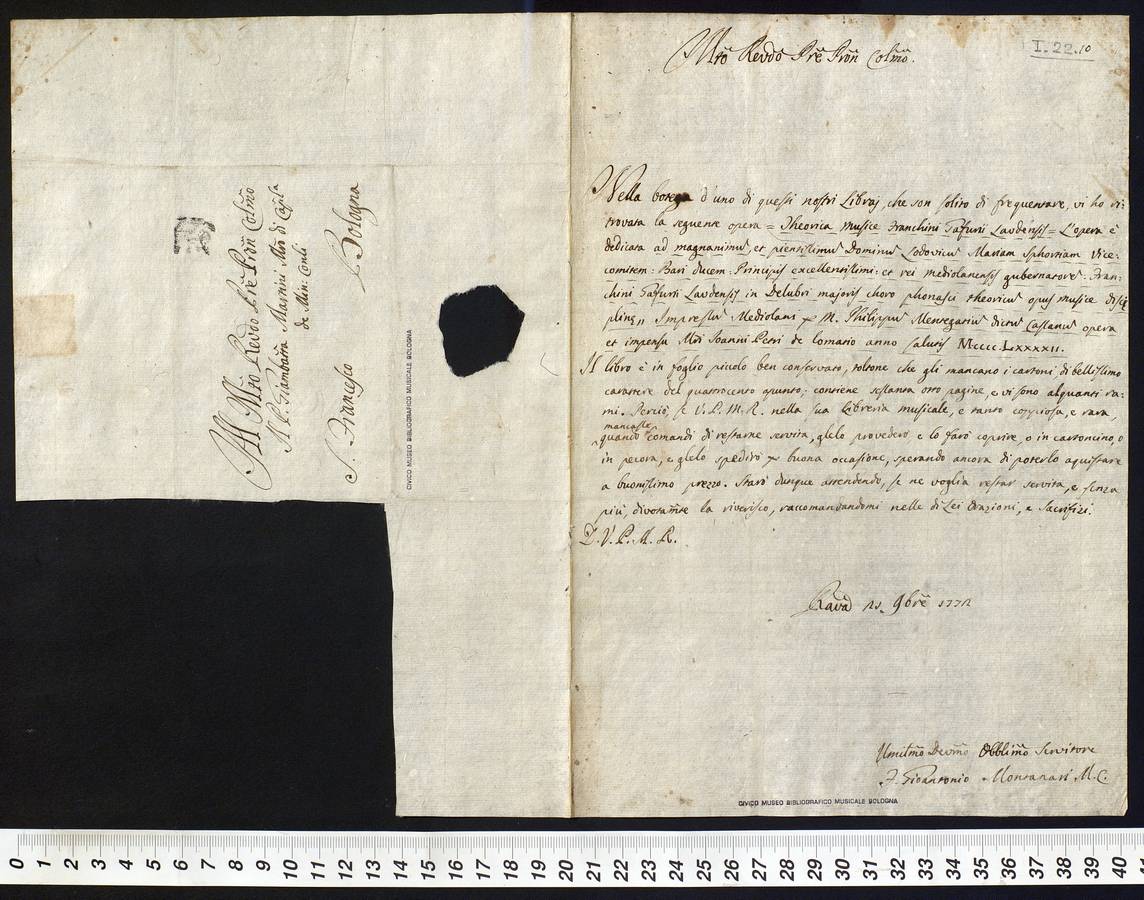 Al Mlto Revdo Pre Pron Colmo
Il P. Giambatta Martini Mro di Capla
de Min: Conli
S. Francesco Bologna
CIVICO MUSEO BIBLIOGRAFICO MUSICALE BOLOGNA
I. 22.10
Mlto Revdo Pre Pron Colmo.
Nella botega d'uno di questi nostri Libraj, che son solito di frequentare, vi ho ri:
trovata la seguente opera = Theorica Musice Franchini Gafurii Laudensis = L'opera è
dedicata ad magnanimu et pientissimu Dominu Lodovicu Mariam Sphortiam Vice:
comitem: Bari ducem: Principis excellentissimi: et rei mediolanensis gubernatore: Fran:
chini Gaffurii Laudensis in Delubri majoris choro phonasci theoricu opus musice disci
pline,, Impressus Mediolani per M. Philippu Mentegatiu dictu Cassanu opera
et impensa Mri Joanni Petri de lomatio anno salutis Mcccc.Lxxxxii.
Il libro è in foglio picolo ben conservato, toltone che gli mancano i cartoni di bellissimo
carattere del quattrocento apunto; contiene sessanta otto pagine, e vi sono alquanti ra:
mi. Perciò, se V. P. M. R. nella sua Libreria musicale, e tanto coppiosa, e rara
mancasse
quando comandi di restarne servita, glelo provederò e lo farò coprire, o in cartoncino, o
in pecora, e glelo spedirò per buona occasione, sperando ancora di poterlo aquistare
a buonissimo prezzo. Starò dunque attendendo, se ne voglia restar servita, e senza
più, divotamte la riverisco, raccomandandomi nelle di Lei Orazioni, e Sacrifizi.
D. V. P. M. R.
9bre 1771
Umilmo Devmo Obblimo Servitore
F. Gioantonio Montanari M. C.
CIVICO MUSEO BIBLIOGRAFICO MUSICALE BOLOGNA
0 1 2 3 4 5 6 7 8 9 10 11 12 13 14 15 16 17 18 19 20 21 22 23 24 25 26 27 28 29 30 31 32 33 34 35 36 37 38 39 40 41